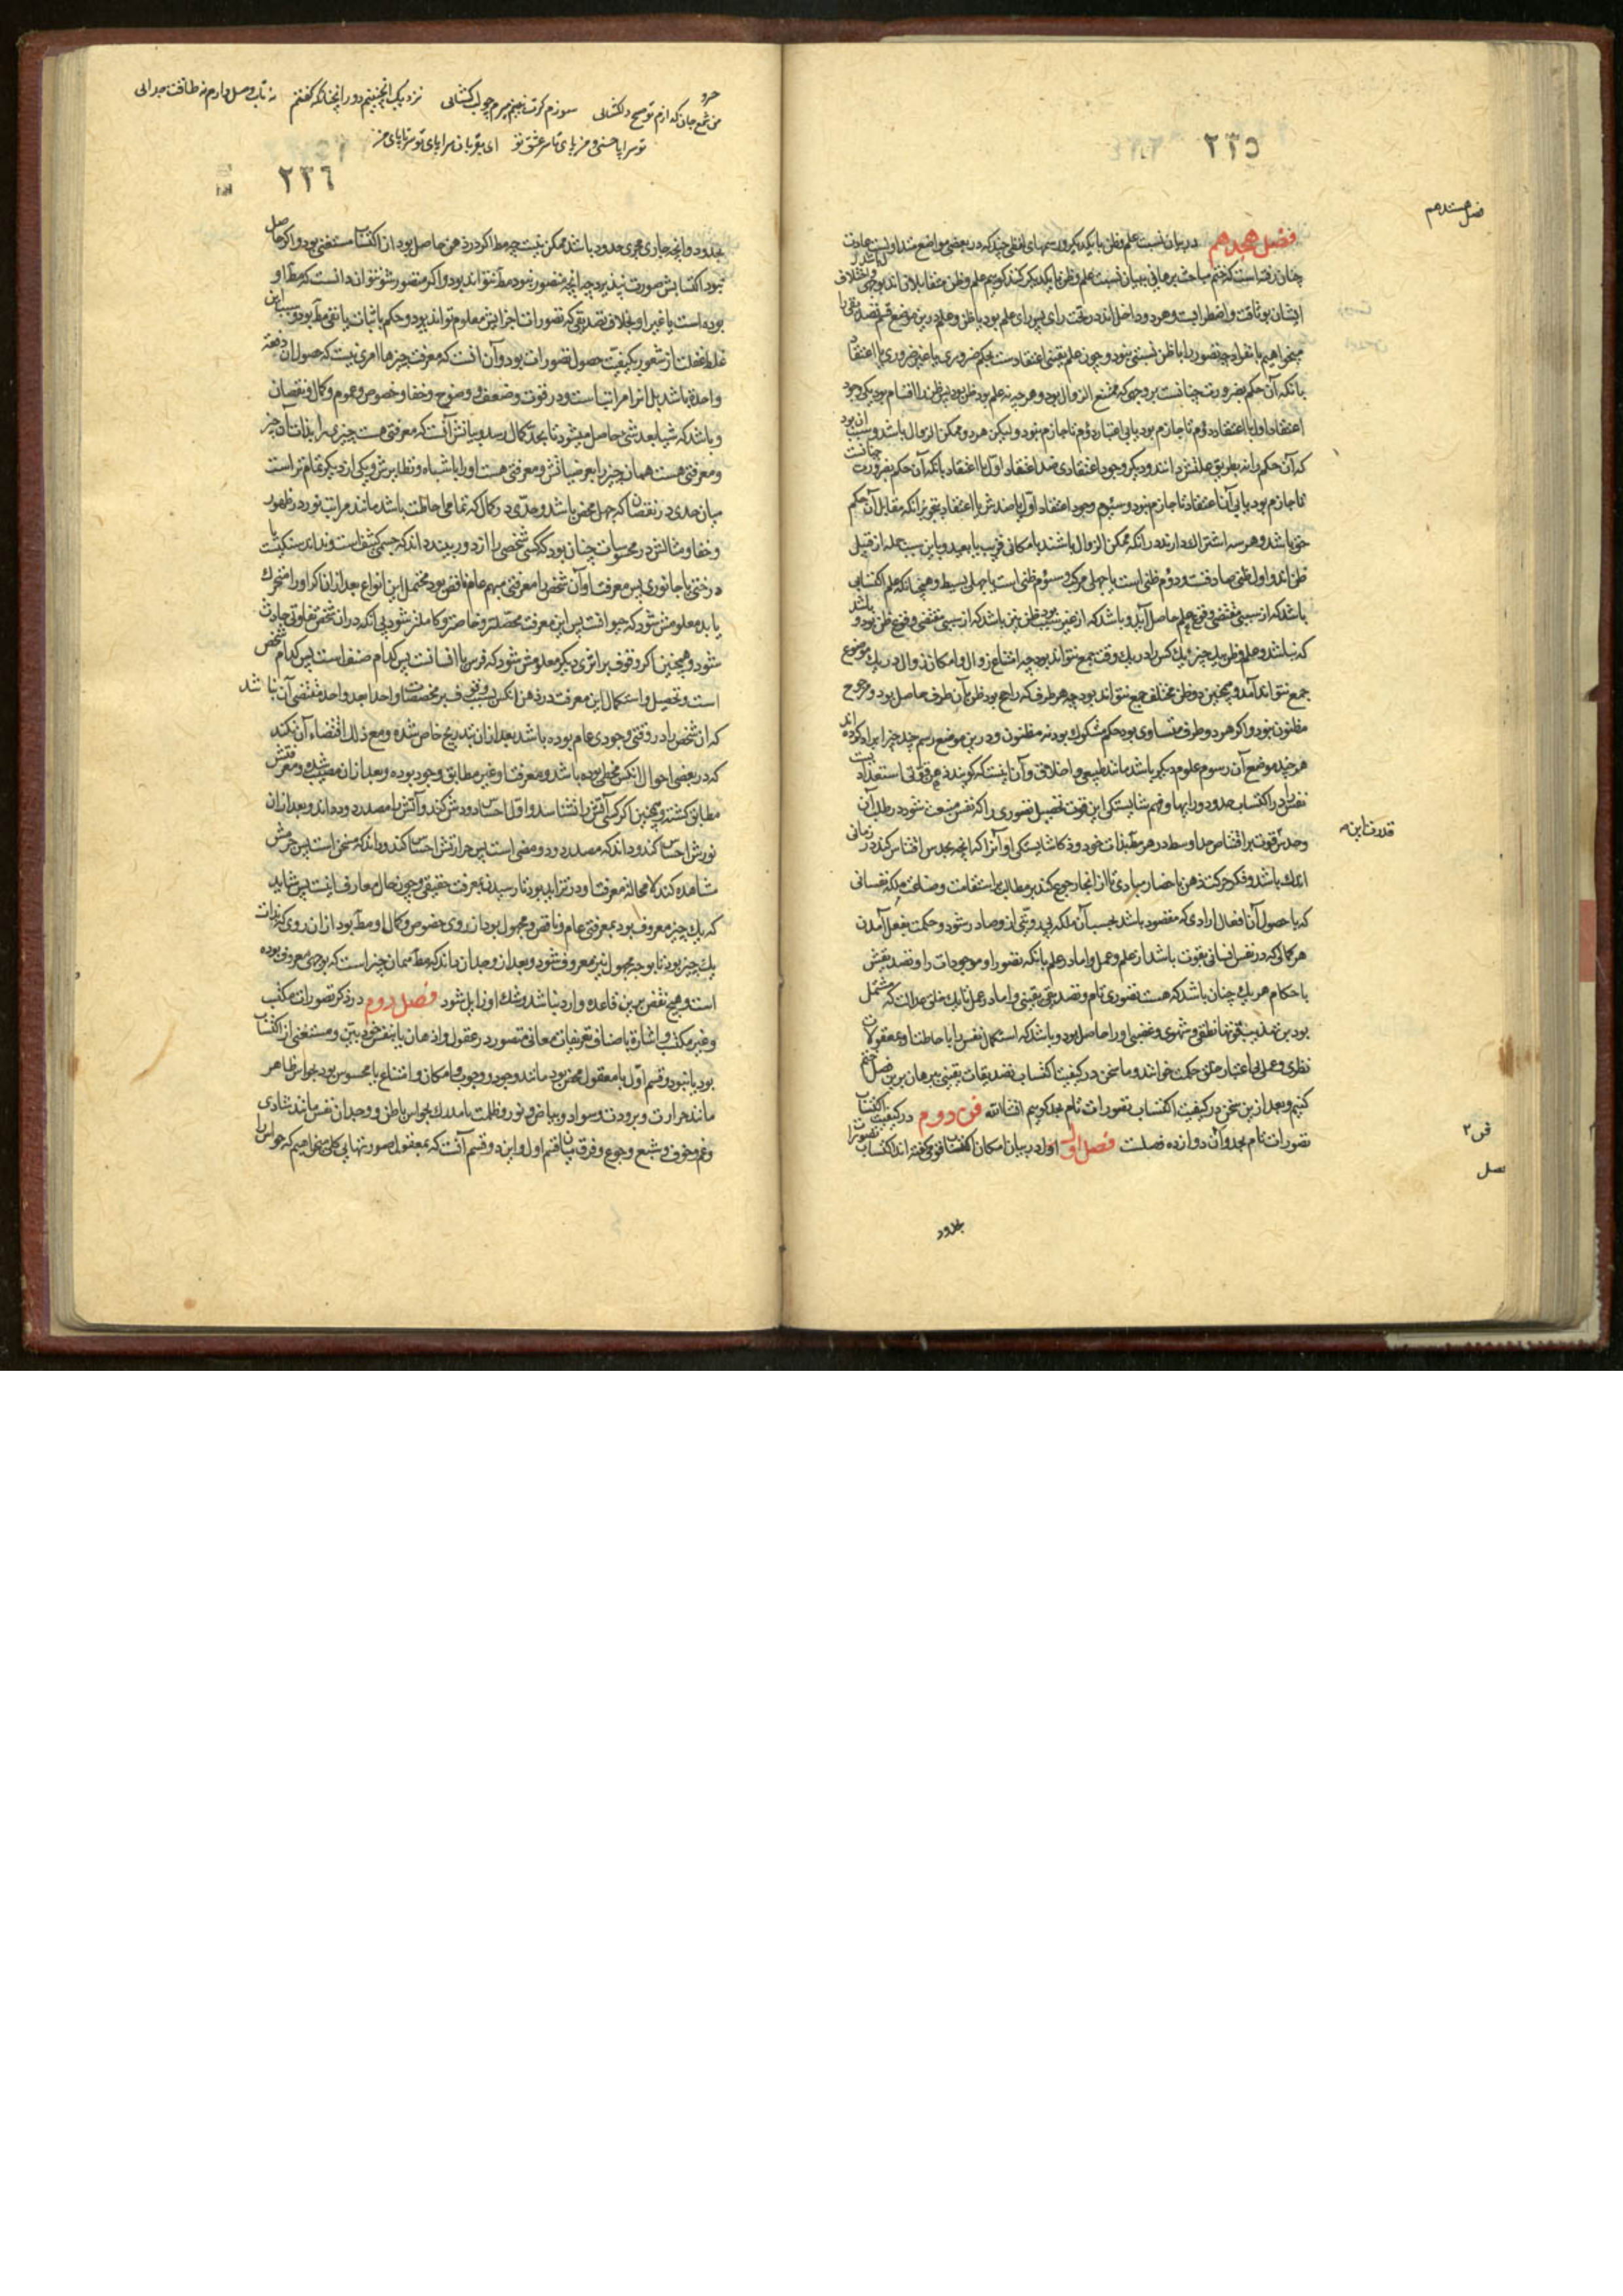 ٢٣٥
فصل هجدهم
فصل هجدهم در بیان نسبت علم و ظن با یکدیگر و رسمهای لفظی چند که در بعضی مواضع متداول است عادت
چنان رفته است که ختم مباحث برهانی به بیان نسبت علم و ظن با یکدیگر کنند گوییم علم و ظن متقابلان‌اند
ایشان بوثاقت و اضطرابست و هر دو داخل‌اند در تحت رای پس رای علم بود یا ظن و علم درین موضع قسم تصدیقی را
میخواهیم بانفراد چه تصور را با ظن نسبتی نبود و چون علم یقینی اعتقادست بحکم ضروری یا غیر ضروری با اعتقاد
بانکه آن حکم بضرورت چنانست بر وجهی که ممتنع الزوال بود و هر چه نه علم بود ظن بود پس ظن را اقسام بود یکی وجود
اعتقاد اول با اعتقاد دوم ناجازم بود یا بی اعتبار دوم ناجازم نبود ولیکن هر دو ممکن الزوال باشد و سبب آن بود
که آن حکم را نه بطریق علتش دانند و دیگر وجود اعتقادی ضد اعتقاد اول با اعتقاد بانکه آن حکم بضرورت چنانست
ناجازم بود یا بی آن اعتقاد ناجازم نبود و سیوم وجود اعتقاد اول یا ضدش با اعتقاد تجویز آنکه مقابل آن حکم
حق باشد و هر سه اشتراک دارند در آنکه ممکن الزوال باشند بامکانی قریب یا بعید و باین سبب جمله از قبیل
ظن‌اند و اول ظنی صادقست و دوم ظنی است با جهلی مرکب و سیوم ظنی است با جهلی بسیط و همچنانکه علم اکتسابی
باشد که از سببی مقتضی وقوع علم حاصل آید و باشد که از غیر سبب بود ظن نیز باشد که از سببی مقتضی وقوع ظن بود و باشد
که نباشد و علم و ظن بیک چیز یک کس را در یک وقت جمع نتواند بود چه امتناع زوال و امکان زوال در یک موضوع
جمع نتواند آمد و همچنین دو ظن مختلف جمع نتواند بود چه هر طرف که راجح بود ظن بآن طرف حاصل بود و مرجوح
مظنون نبود و اگر هر دو طرف متساوی بود حکم مشکوک بود نه مظنون و درین موضع رسم چند چیز ایراد کرده‌اند
هر چند موضع آن رسوم علوم دیگر باشد مانند طبیعی و اخلاقی و آن اینست که گویند ذهن قوتی استعدادیست
نفس را در اکتساب حدود و رایها و فهم شایستگی این قوت تحصیل تصوری را که نفس منبعث شود در طلب آن
وحدس قوت بر اقتناص حد اوسط در هر مطلبی بذات خود و ذکا شایستگی او آنرا که آنچه بحدس اقتناص کند در زمانی
اندک باشد و فکر حرکت ذهن باحضار مبادی تا از آنجا رجوع کند بر مطالب بر استقامت و صناعت ملکه نفسانی
که با حصول آن افعال ارادی که مقصود باشد بحسب آن ملکه بی رویتی ازو صادر شود و حکمت بفعل آمدن
هر کمالی که در نفس انسانی بقوت باشد از علم و عمل و اما در علم بانکه تصور او موجودات را و تصدیقش
باحکام هر یک چنان باشد که هست تصوری تام و تصدیقی یقینی و اما در عمل تا یک خلق عدالت که مشتمل
بود بر تهذیب قوتهای نطقی و شهوی و غضبی او را حاصل بود و باشد که استکمال نفس را باحاطت او بمعقولات
نظری و عملی بی اعتبار خلق حکمت خوانند و ما سخن در کیفیت اکتساب تصدیقات یقینی ببرهان برین فصل ختم
کنیم و بعد ازین سخن در کیفیت اکتساب تصورات تام بحد گوییم انشاالله فن دوم در کیفیت اکتساب
تصورات تام بحد و آن دوازده فصلست فصل اول در بیان امکان اکتساب تصورات قومی گفته‌اند اکتساب
فن ٢
بحدود
من شمع جان گدازم تو صبح دلگشایی سوزم گرت نبینم میرم چو لب گشایی نزدیک اینچنینم دور آنچنانکه گفتم نه تاب وصل دارم نه طاقت جدایی
تو سراپا حسنی و من پای تا سر عشق تو ای بقربان سراپای تو سرتاپای من
٢٣٦
بحدود و آنچه جاری مجری حدود باشد ممکن نیست چه مطلوب اگر در ذهن حاصل بود از اکتساب مستغنی بود و اگر حاصل
نبود اکتسابش صورت نپذیرد چه آنچه متصور نبود مطلوب نتواند بود و اگر متصور شود نتوان دانست که مطلوب او
بوده است یا غیر او بخلاف تصدیقی که تصورات اجزایش معلوم تواند بود و حکم باثبات یا نفی مطلوب بود و سبب این
غلط غفلت از شعور بکیفیت حصول تصورات بود و آن آنست که معرفت چیزها امری نیست که حصول آن دفعة
واحدة باشد بل آنرا مراتب است در قوت و ضعف و وضوح و خفا و خصوص و عموم و کمال و نقصان
و باشد که شیئا بعد شیء حاصل میشود تا بحد کمال رسد و بیانش آنست که معرفتی هست چیزی را بذات آن چیز
و معرفتی هست همان چیز را بعرضیاتش و معرفتی هست او را باشباه و نظایرش و یکی از دیگر تمام‌تر است
میان حدی در نقصان که جهل محض باشد و حدی در کمال که تمامی احاطت باشد مانند مراتب نور در ظهور
و خفا و مثالش در محسوسات چنان بود که کسی شخصی را از دور بیند داند که جسمی کثیف است و نداند سنگیست یا
درختی یا جانوری پس معرفت او آن شخص را معرفتی مبهم عام ناقص بود محتمل این انواع بعد از آن اگر او را متحرک
یابد معلومش شود که حیوانست پس این معرفت محصل‌تر و خاص‌تر و کامل‌تر شود بی آنکه در آن شخص تفاوتی حادث
شود و همچنین تا گر وقوف بر اثری دیگر معلومش شود که فرس یا انسانست پس کدام صنف است پس کدام شخص
است و تحصیل و استکمال این معرفت در ذهن آنکس بسبب وقوف بر مخصصات واحدا بعد واحد مقتضی آن نباشد
که آن شخص را در وقتی وجودی عام بوده باشد بعد از آن بتدریج خاص شده و مع ذلک اقتضاء آن نکند
که در بعضی احوال آنکس مخطی بوده باشد و معرفت او غیر مطابق وجود بوده و بعد از آن مصیب شده و معرفتش
مطابق گشته و همچنین اگر کسی آتش را نشناسد و اول احساس دودش کند و آتش را مصدر دود داند و بعد از آن
نورش احساس کند و داند که مصدر دود و مضی است پس حرارتش احساس کند و داند که مسخن است پس جرمش
مشاهده کند لامحاله معرفت او در تزاید بود تا رسیدن بمعرفت حقیقی و چون حال معارف اینست پس شاید
که یک چیز معروف بود بمعرفتی عام و ناقص و مجهول بود از روی خصوص و کمال و مطلوب بود از آن روی که بذات
یک چیز بود تا بوجه مجهول نیز معروف شود و بعد از وجدان داند که مطلوب همان چیز است که بوجهی معروف بوده
است و هیچ نقض برین قاعده وارد نباشد و شک او زایل شود فصل دوم در ذکر تصورات مکتسب
و غیر مکتسب و اشارة باصناف تعریفات معانی متصور در عقول و اذهان یا بنفس خود بین و مستغنی از اکتساب
بود یا نبود و قسم اول یا معقول محض بود مانند وجود و وجوب و امکان و امتناع یا محسوس بود بحواس ظاهر
مانند حرارت و برودت و سواد و بیاض و نور و ظلمت یا مدرک بحواس باطن و وجدان نفس مانند شادی
و غم و خوف و شبع و جوع و فرق میان قسم اول و این دو قسم آنست که بمعقول صور نهایی کلی میخواهیم که حواس را